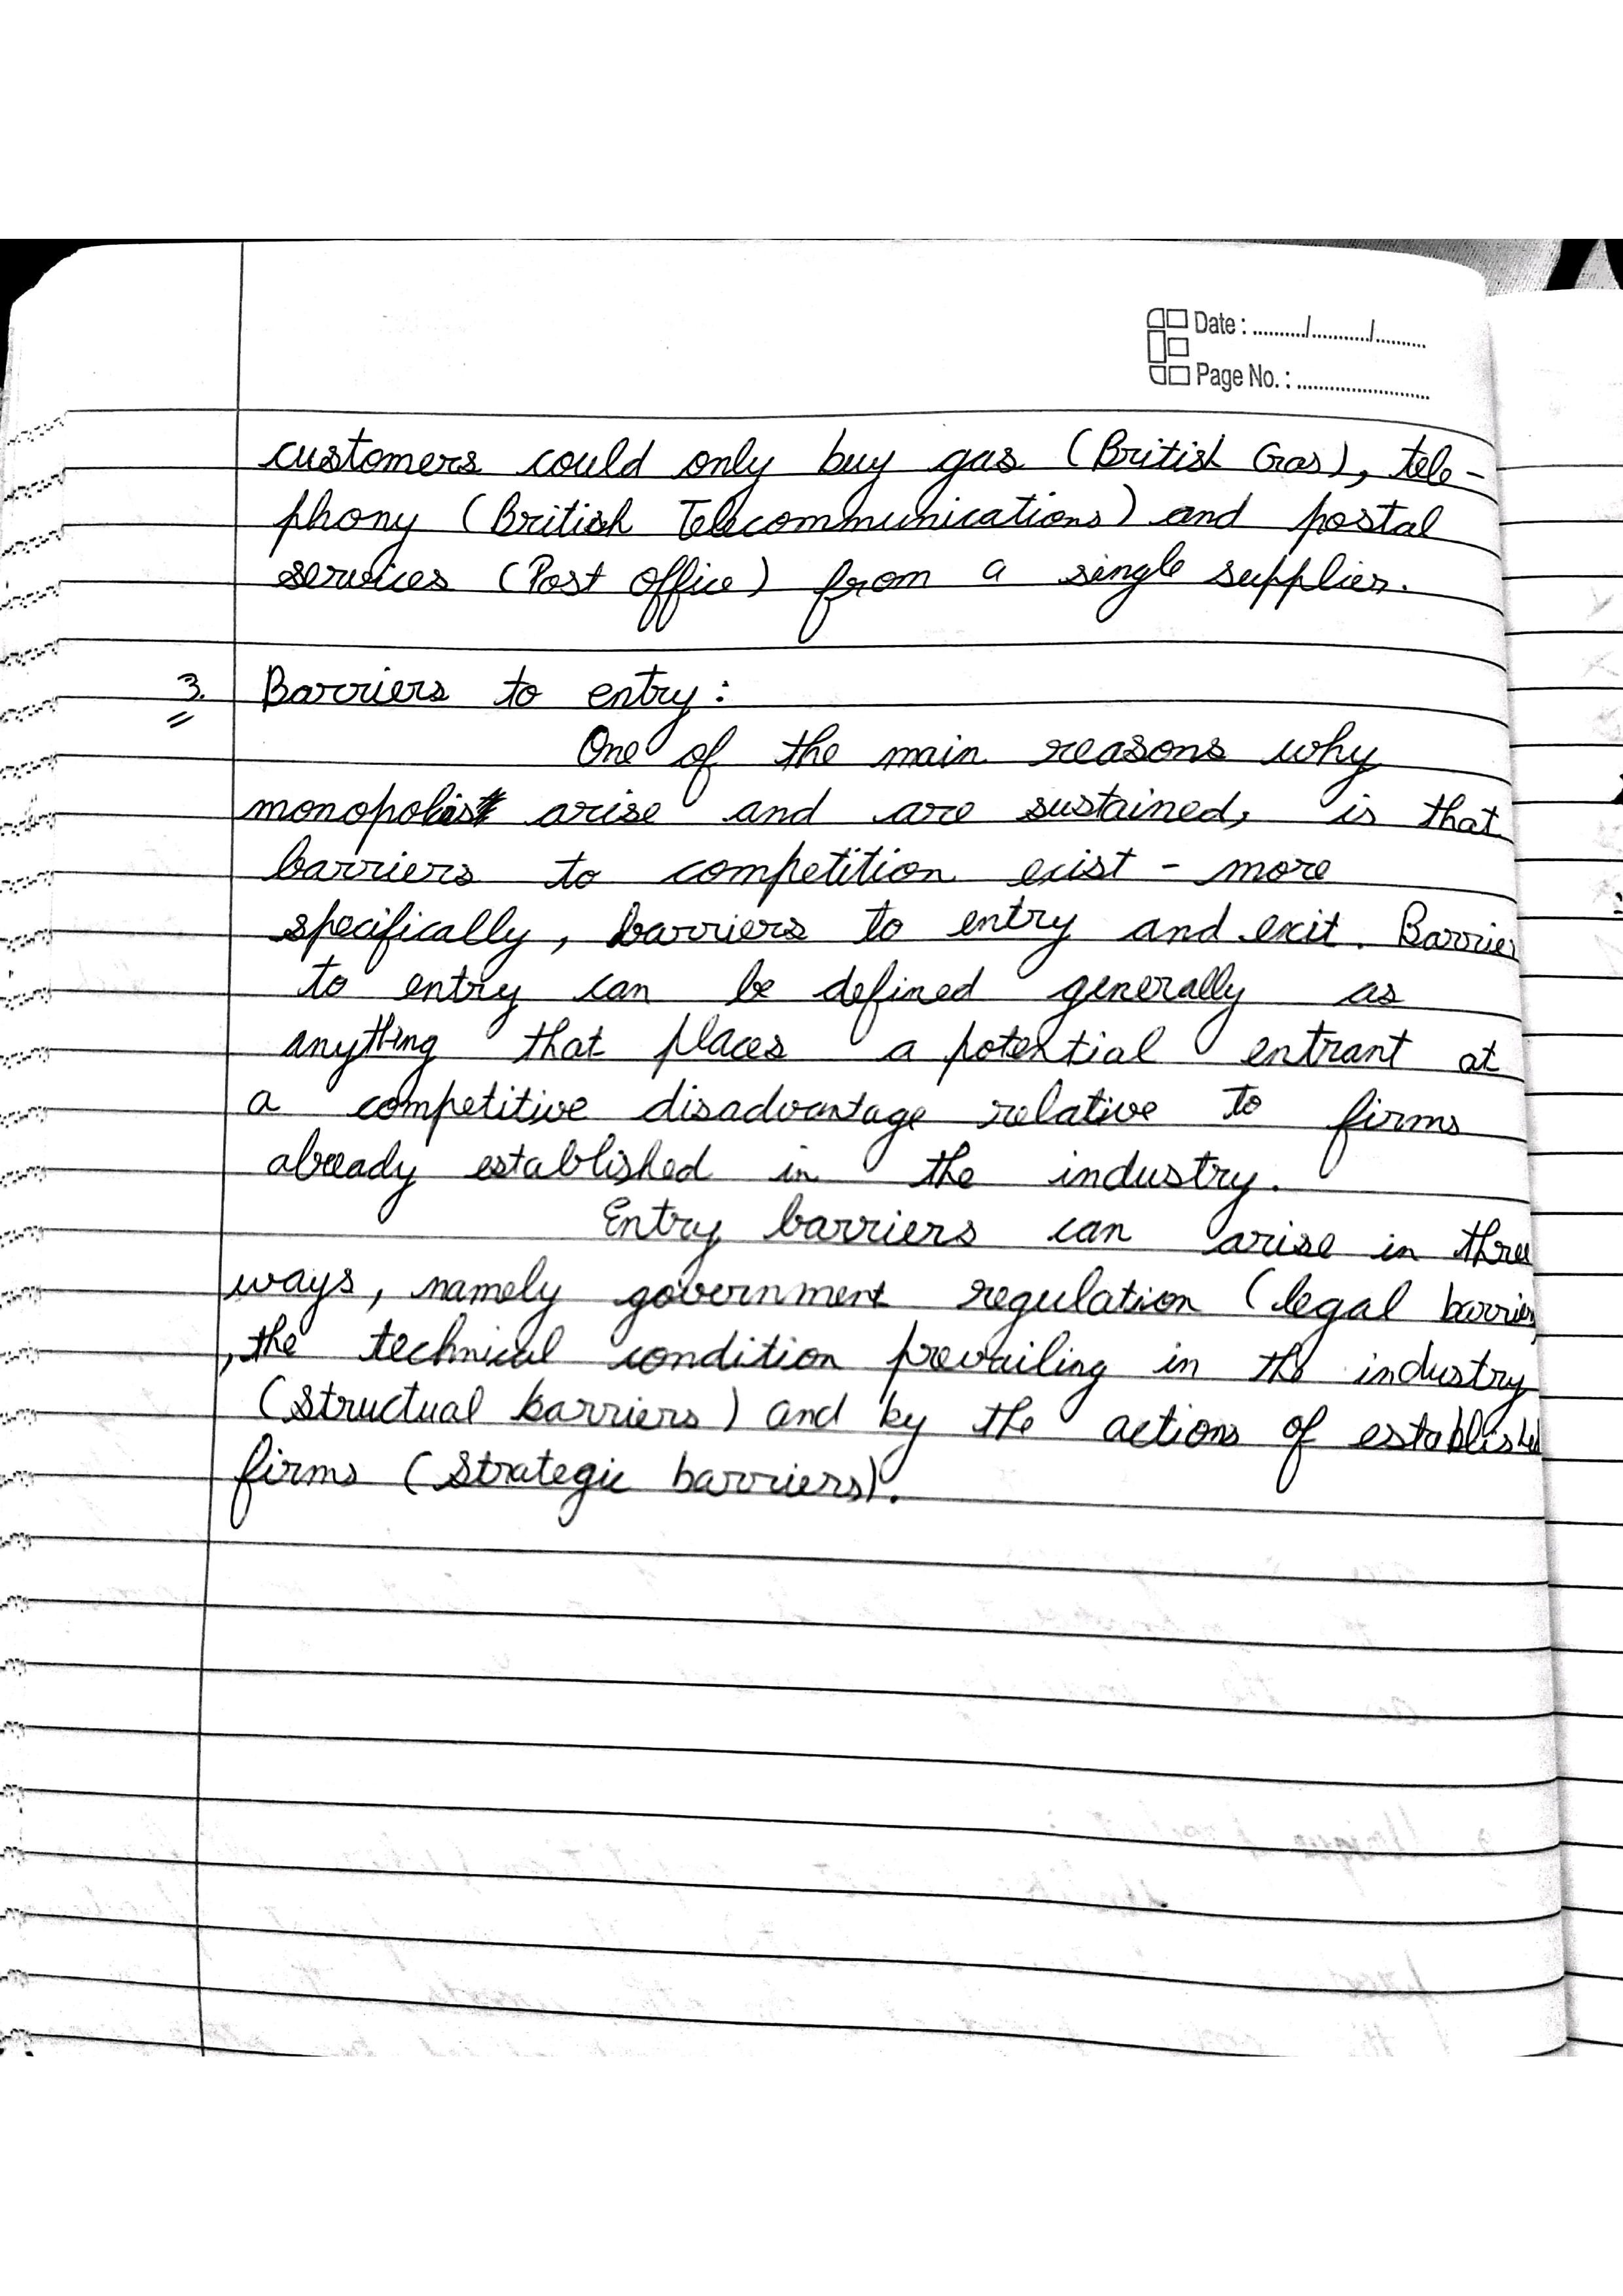 Date : ........../.........../..........
Page No. : ........................
customers could only buy gas (British Gas), tele-
phony (British Telecommunications) and postal
services (Post office) from a single supplier.
3. Barriers to entry:
One of the main reasons why
arise and are sustained, is that
barriers to competition exist - more
specifically, barriers to entry and exit. Barrier
to entry can be defined generally as
anything that places a potential entrant at
a competitive disadvantage relative to firms
already established in the industry.
Entry barriers can arise in three
ways, namely government regulation (legal barrier
, the technical condition prevailing in the industry
(structual barriers) and by the actions of established
firms (Strategic barriers).